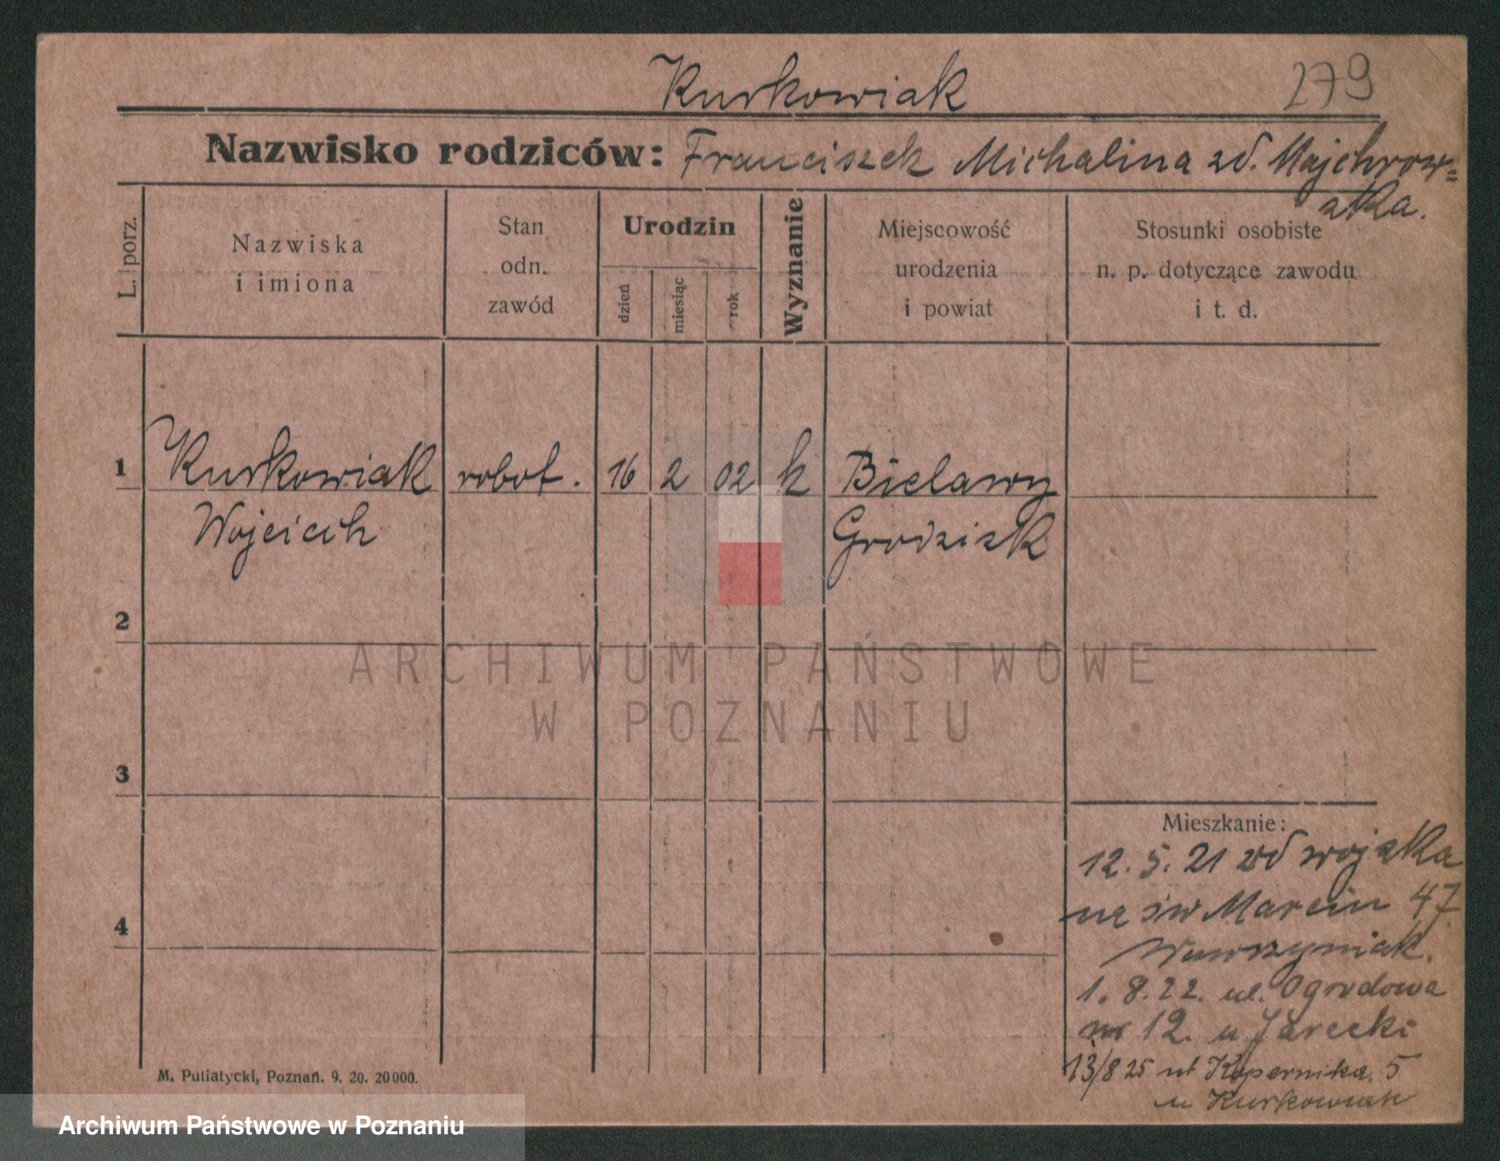 Kurkowiak 279
Nazwisko rodziców: Franciszek Michalina zd. Majchrow=
ska.
L. porz.
Nazwiska
i imiona
Stan
odn.
zawód
Urodzin
dzień
miesiąc
rok
Wyznanie
Miejscowość
urodzenia
i powiat
Stosunki osobiste
n. p. dotyczące zawodu
i t. d.
1 Kurkowiak robot. 16 2 02 k Bielawy
Wojciech Grodzisk
2
ARCHIWUM PAŃSTWOWE
W POZNANIU
3
Mieszkanie:
12. 5. 21 od wojska
na św Marcin 47
4
Wawrzyniak.
1. 8. 22. ul. Ogrodowa
nr 12. u Jarecki
13/8 25 ul Kopernika. 5
u Kurkowiak
M. Putiatycki, Poznań. 9. 20. 20000.
Archiwum Państwowe w Poznaniu